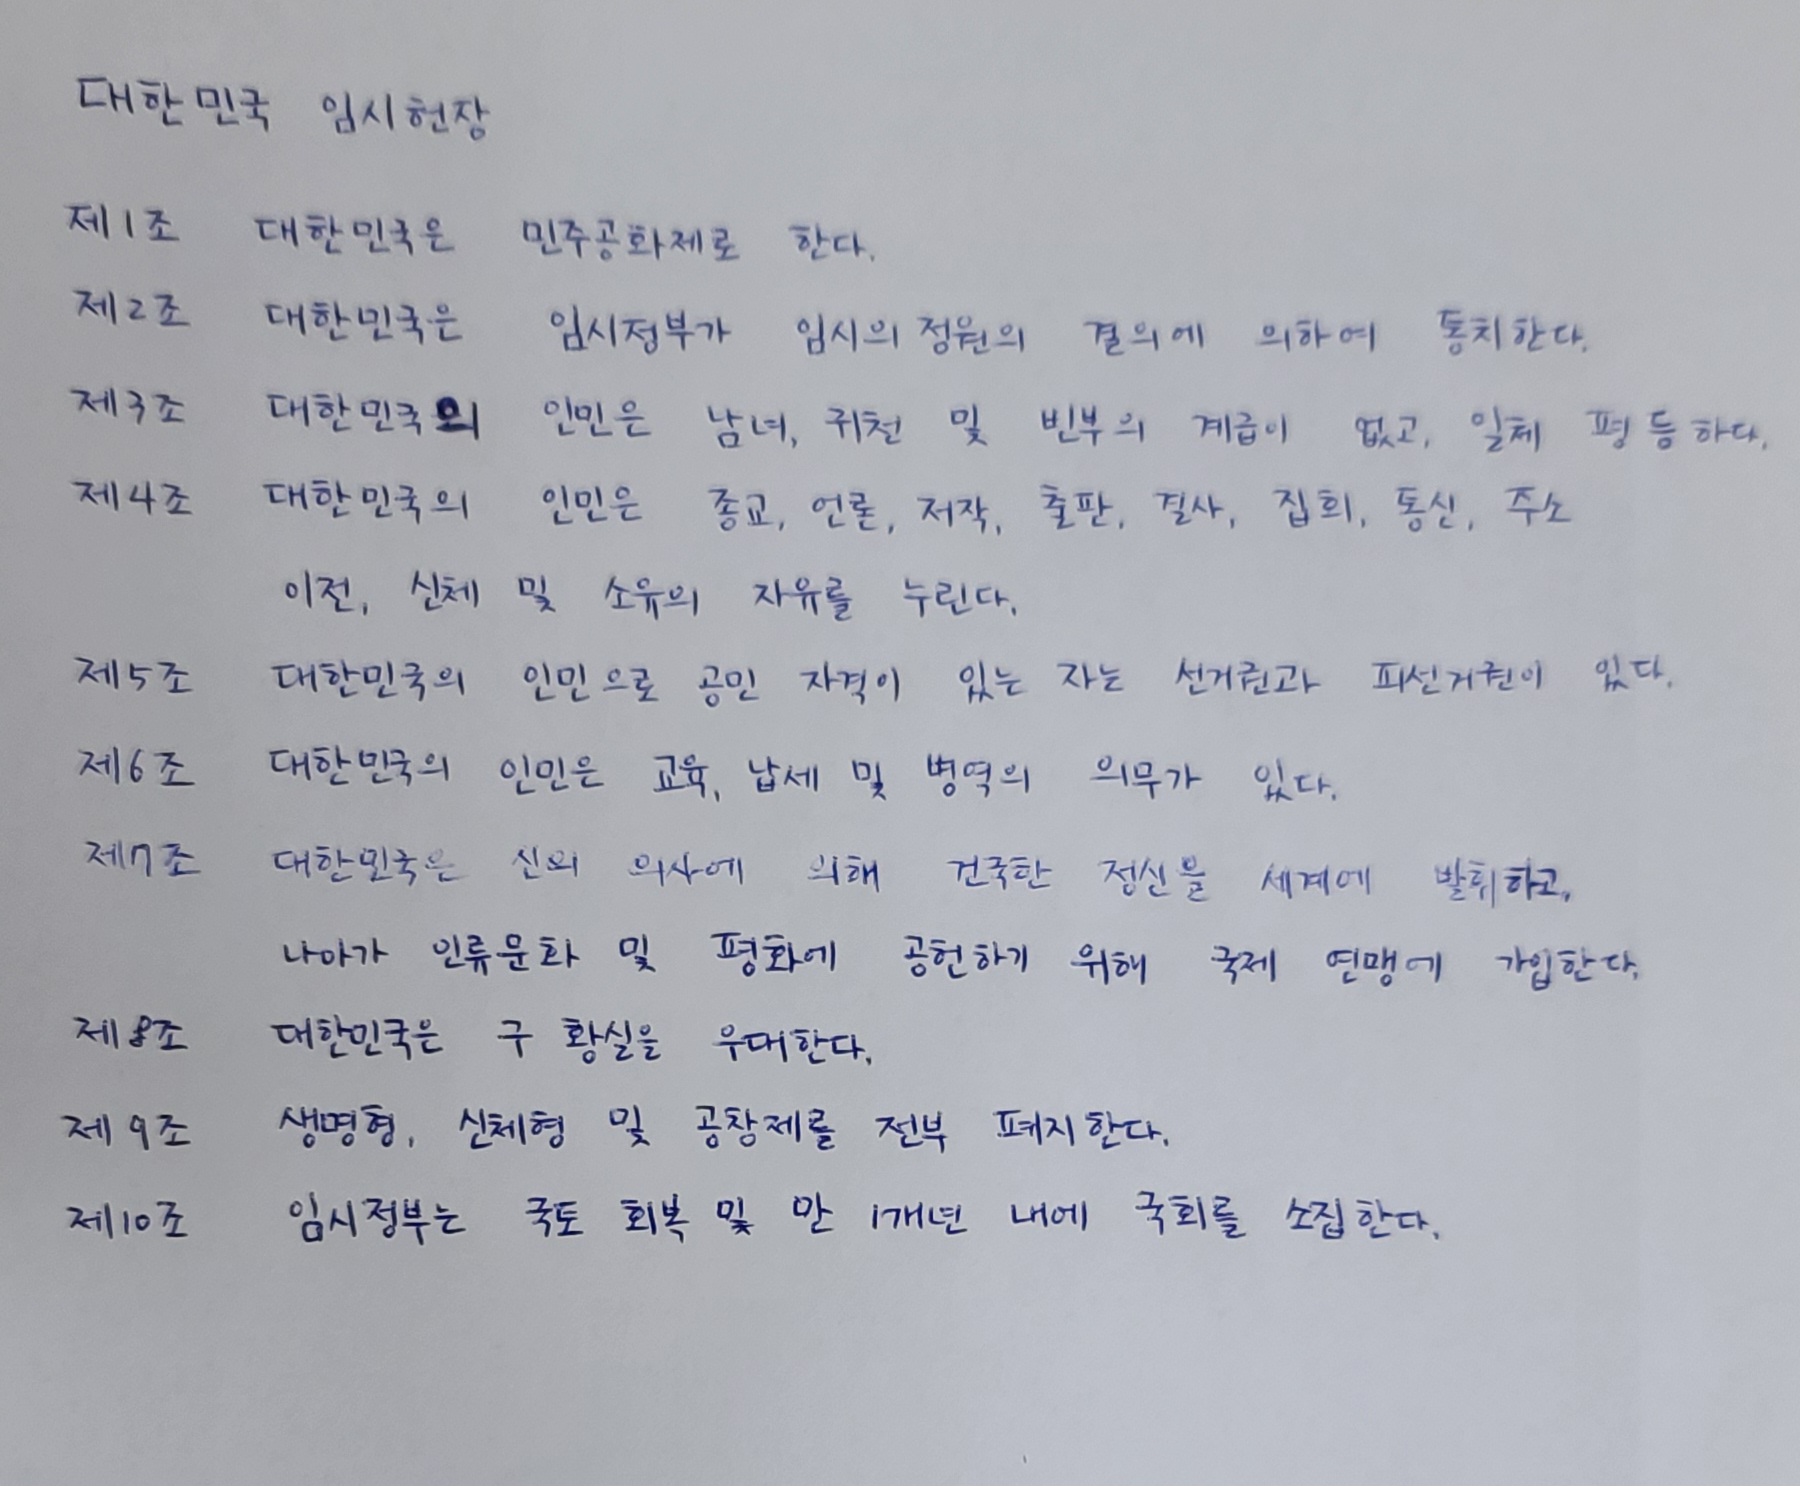 대한민국 임시헌장
제1조 대한민국은 민주공화제로 한다.
제2조 대한민국은 임시정부가 임시의정원의 결의에 의하여 통치한다.
제3조 대한민국의 인민은 남녀, 귀천 및 빈부의 계급이 없고, 일체 평등하다.
제4조 대한민국의 인민은 종교, 언론, 저작, 출판, 결사, 집회, 통신, 주소
이전, 신체 및 소유의 자유를 누린다.
제5조 대한민국의 인민으로 공민 자격이 있는 자는 선거권과 피선거권이 있다.
제6조 대한민국의 인민은 교육, 납세 및 병역의 의무가 있다.
제7조 대한민국은 신의 의사에 의해 건국한 정신을 세계에 발휘하고,
나아가 인류문화 및 평화에 공헌하기 위해 국제 연맹에 가입한다.
제8조 대한민국은 구 황실을 우대한다.
제9조 생명형, 신체형 및 공창제를 전부 폐지한다.
제10조 임시정부는 국토 회복 및 만 1개년 내에 국회를 소집한다.